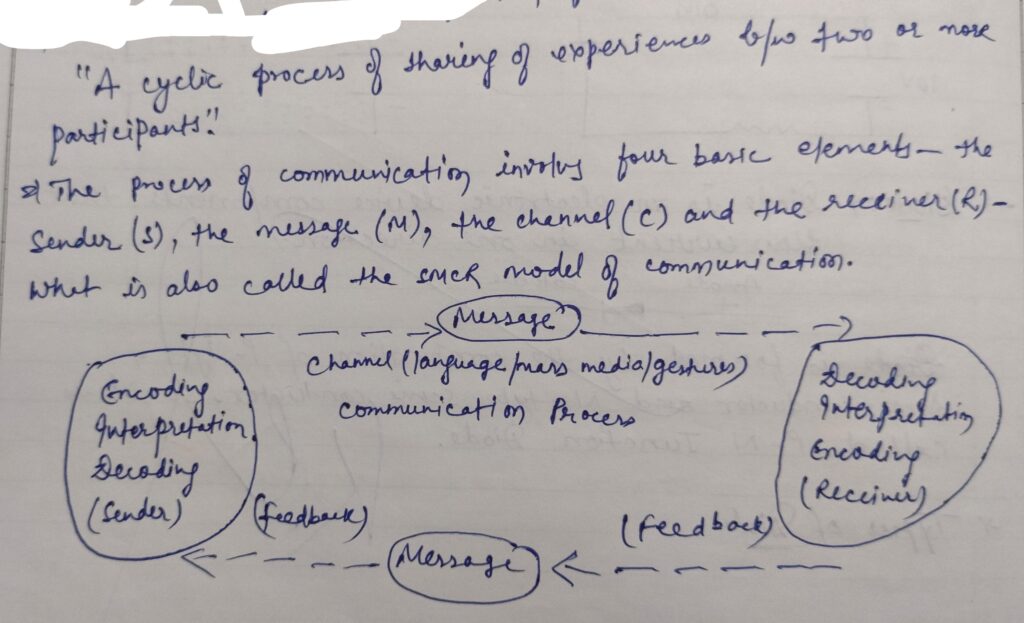 "A cyclic process of sharing of experiences b/w two or more
participants."
The process of communication involvs four basic elements - the
Sender (S), the message (M), the channel (C) and the receiver (R) -
What is also called the SMCR model of communication.
Message
Channel (language/mass media/gestures)
Communication Process
Encoding
Interpretation
Decoding
(Sender)
(feedback)
Decoding
Interpretation
Encoding
(Receiver)
(feedback)
Message